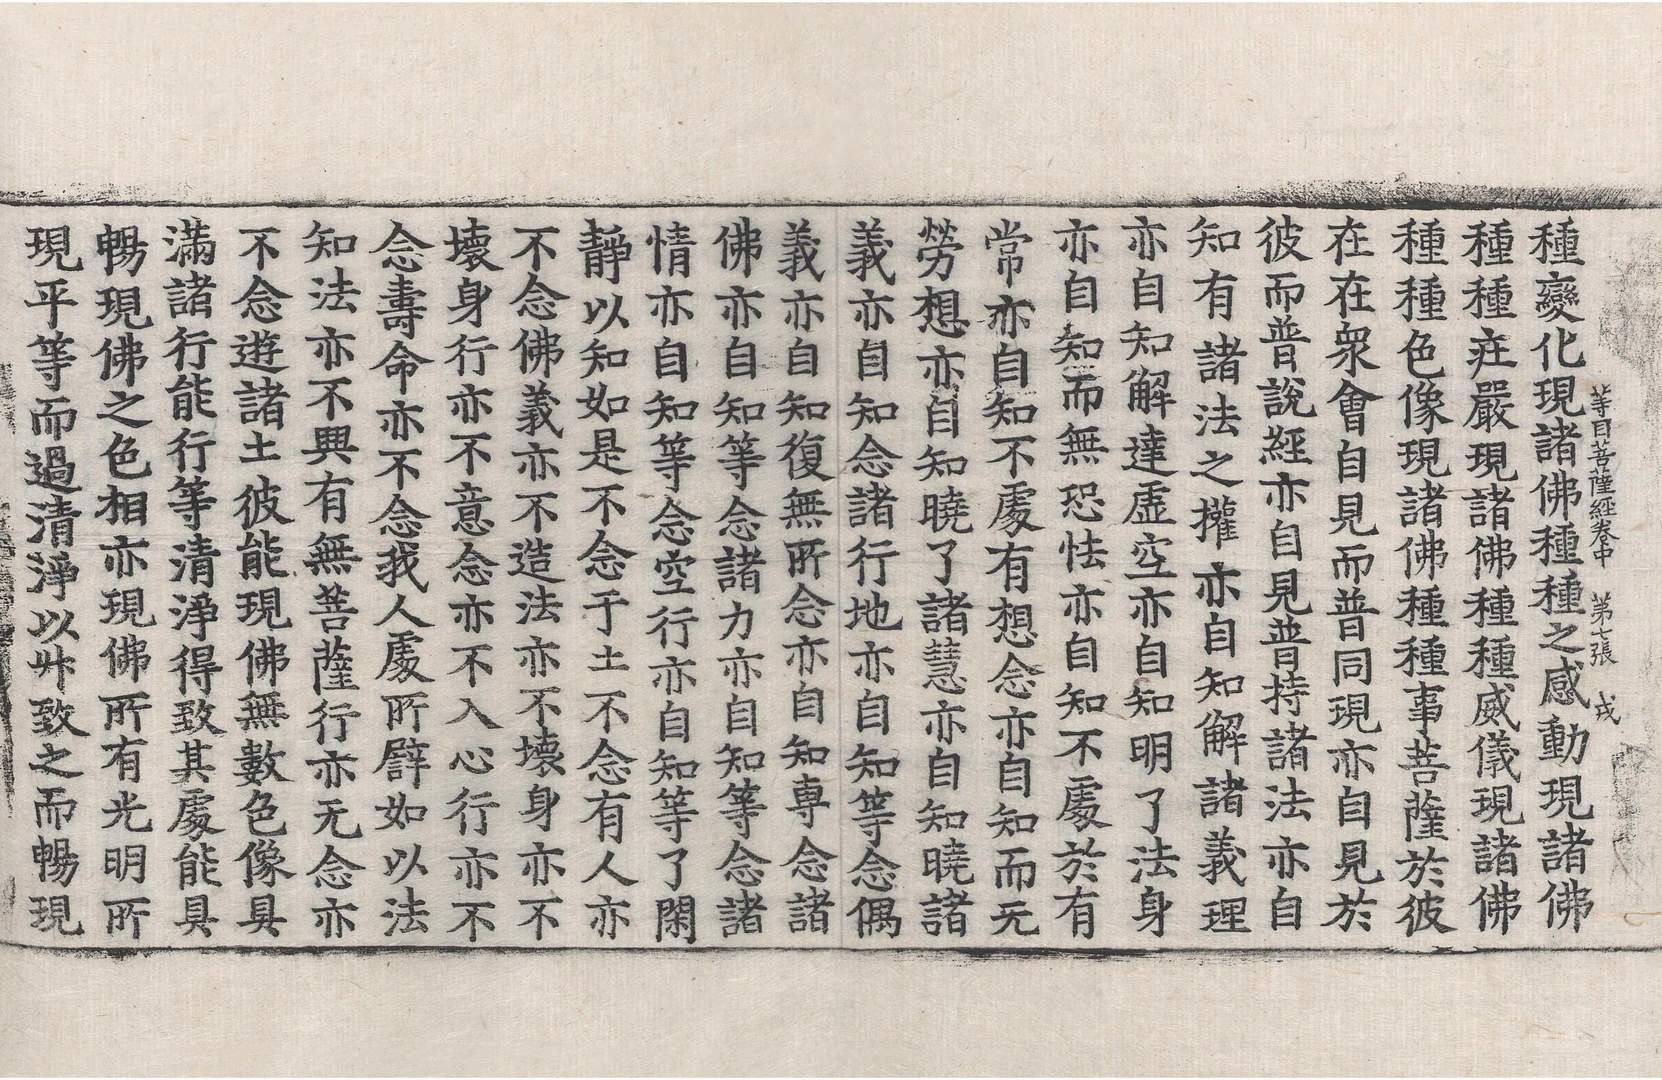 等目菩薩經卷中　第七張　戎
種變化現諸佛種種之感動現諸佛
種種庄嚴現諸佛種種威儀現諸佛
種種色像現諸佛種種事菩薩於彼
在在衆會自見而普同現亦自見於
彼而普說經亦自見普持諸法亦自
知有諸法之權亦自知解諸義理
亦自知解達虛空亦自知明了法身
亦自知而無恐怯亦自知不處於有
常亦自知不處有想念亦自知而无
勞想亦自知曉了諸慧亦自知曉諸
義亦自知念諸行地亦自知等念偶
義亦自知復無所念亦自知専念諸
佛亦自知等念諸力亦自知等念諸
情亦自知等念空行亦自知等了閑
靜以知如是不念于土不念有人亦
不念佛義亦不造法亦不壞身亦不
壞身行亦不意念亦不入心行亦不
念壽命亦不念我人處所譬如以法
知法亦不興有無菩薩行亦无念亦
不念遊諸土彼能現佛無數色像具
滿諸行能行等清淨得致其處能具
暢現佛之色相亦現佛所有光明所
現平等而過清淨以㪷致之而暢現